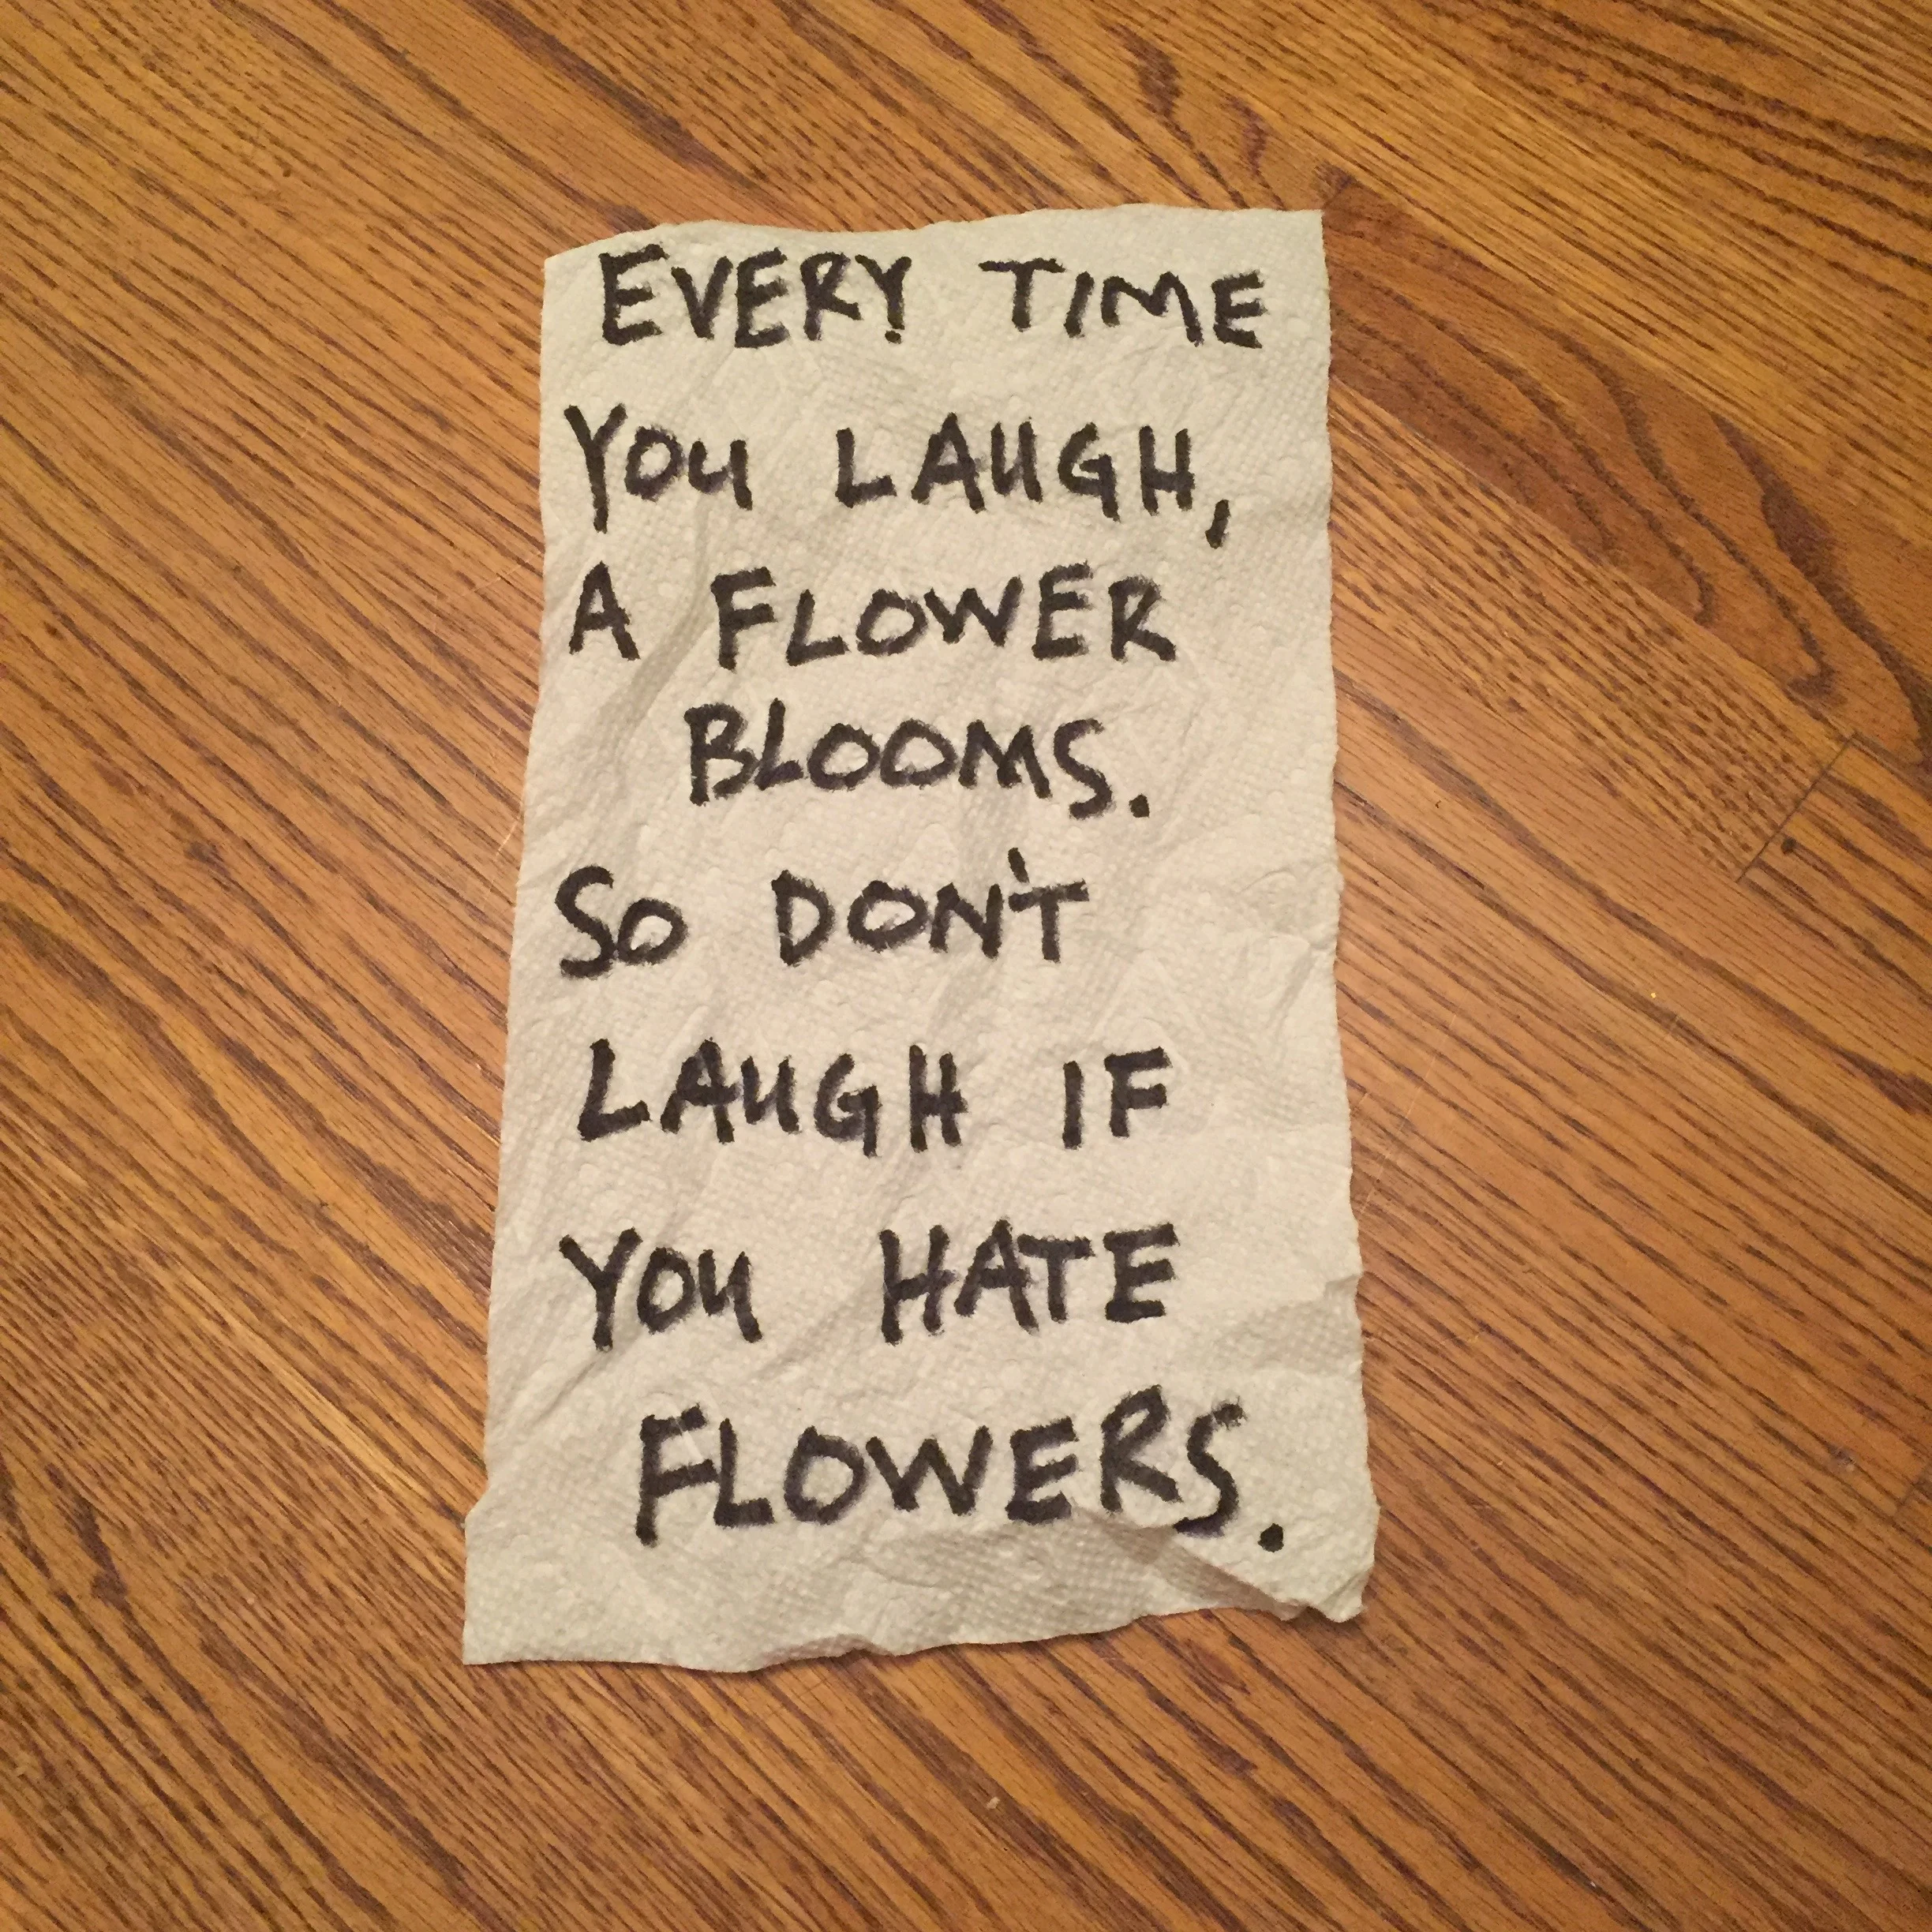 EVERY TIME
YOU LAUGH,
A FLOWER
BLOOMS.
SO DON'T
LAUGH IF
YOU HATE
FLOWERS.